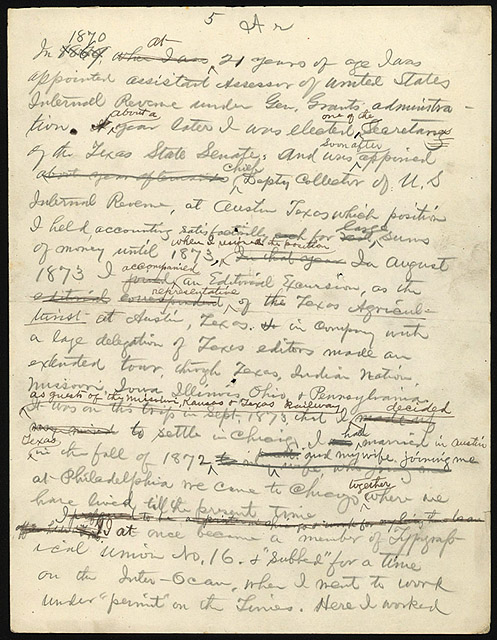 5 A r
1870
In 1869, when I was at 21 years of age I was
appointed assistant Assessor of United States
Internal Revenue under Gen. Grants, administra-
tion. A about a year later I was elected one of the Secretarys
of the Texas State Senate; And was soon after appoined
about year afterwards Chief Depty Collector of U, S
Internal Revenue, at Austin Texas which position
I held accounting satisfactorily, for large sums
of money until 1873, when I resigned the position In that year In August
1873 I accompanied an Editorial Excursion, as the
editorial correspondent representative of the Texas Agricul-
turist at Austin, Texas. in company with
a lage delegation of Texas editors made an
extended tour, though Texas, Indian Nation,
Missouri, Iowa, Illinois, Ohio, & Pennsylvania.
as guests of the Missouri, Kansas & Texas railway
It was on this trip in Sept. 1873, that I decided
to settle in Chicago. I had married in Austin
Texas in the fall of 1872, and my wife joining me
at Philadelphia we came to Chicago together where we
have lived till the present time
I at once became a member of Typograph-
ical Union No. 16. & "Subbed" for a time
on the Inter-Ocean, when I went to work
under "permit" on the Times. Here I worked